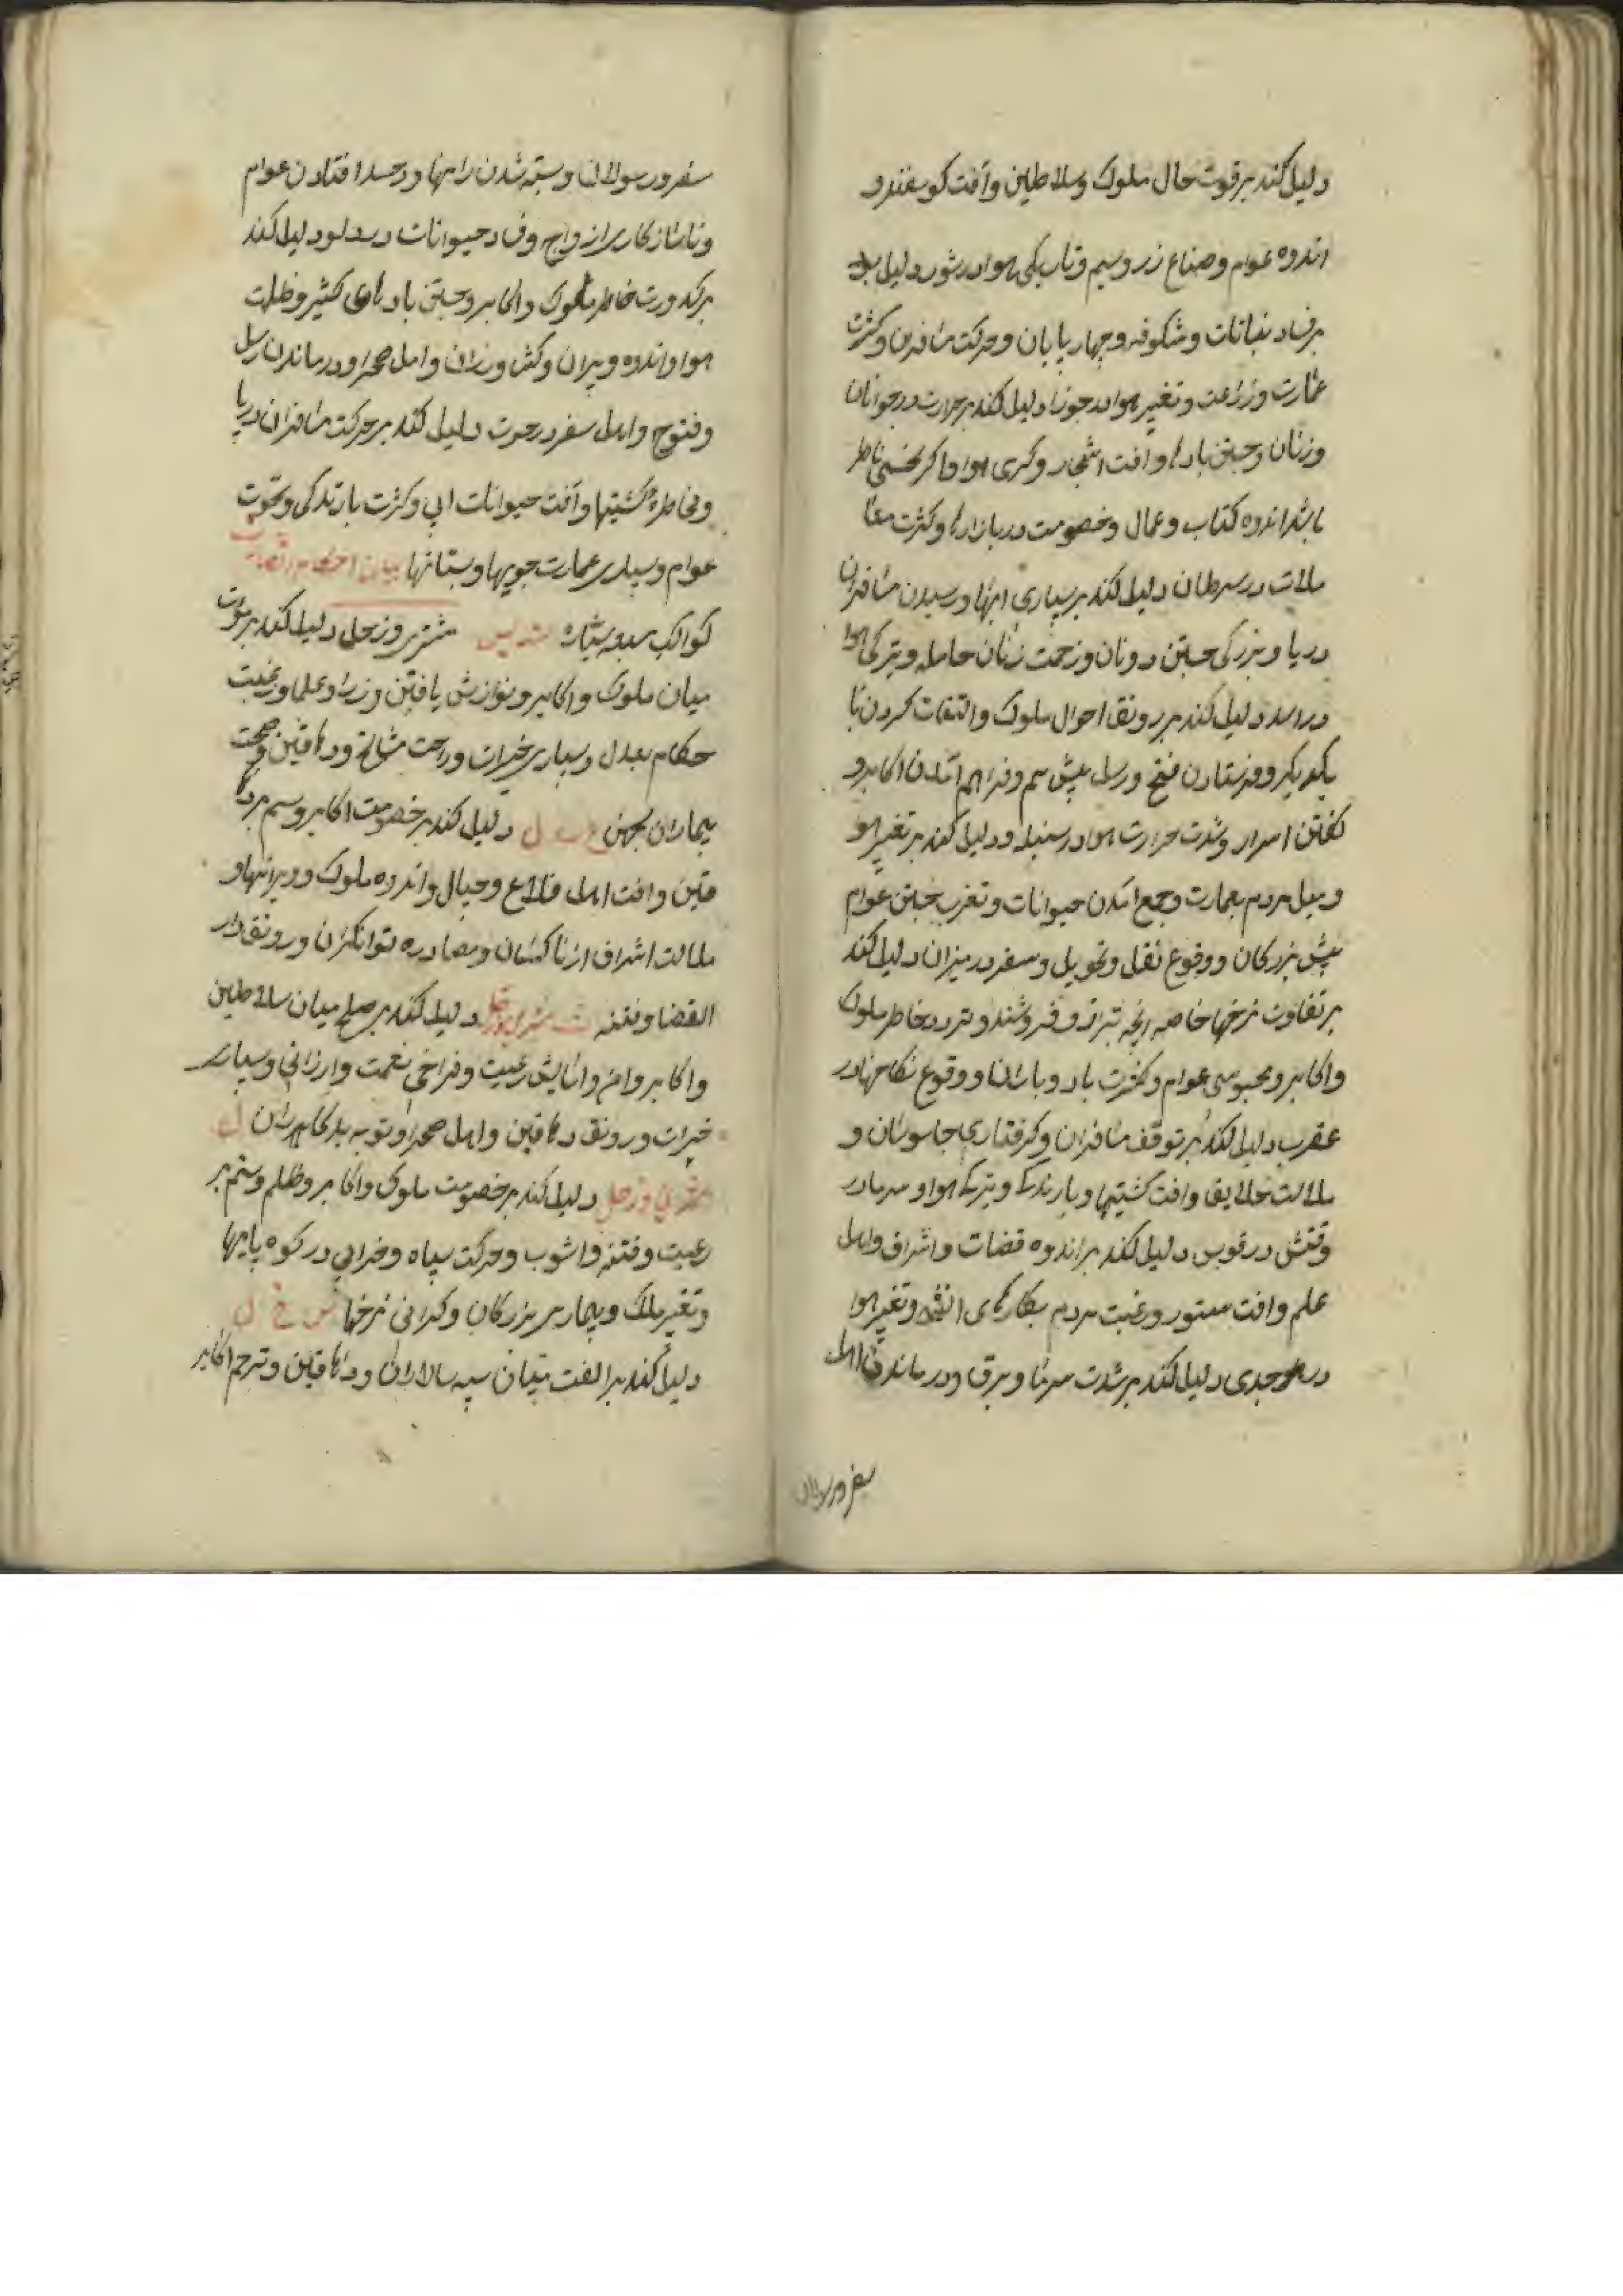 دلیل کند بر قوت حال ملوک و سلاطین و آفت کوسفند و
اندوه عوام و صناع زر و سیم و تاریکی هوا در ثور دلیل بود
بر فساد نباتات و شکوفه و چهارپایان و حرکت مسافرین و کثرت
عمارت و زراعت و تغیر هوا در جوزا دلیل کند بر حرارت در جوانان
و زنان و جستن بادها و افت اشجار و کرمی هوا و اکر نحسی ناظر
باشد اندوه کتاب و عمال و خصومت در بازارها و کثرت معا
ملات در سرطان دلیل کند بر بسیاری ابها و رسیدن مسافران
دریا و بزرکی جستن دونان و زحمت زنان حامله و تیرکی هوا
در اسد دلیل کند بر رونق احوال ملوک و التفات کردن با
یکدیکر و فرستادن فتح و رسل پیش هم و فراهم آمدن اکابر و
کفتن اسرار و شدت حرارت هوا در سنبله دلیل کند بر تغیر هوا
و میل مردم بعمارت و جمع آمدن حیوانات و تقرب جستن عوام
پیش بزرکان و وقوع نقل و تحویل و سفر در میزان دلیل کند
بر تفاوت نرخها خاصه انچه بترازو فروشند و تردد خاطر ملوک
و اکابر و محبوسی عوام و کثرت باد و باران و وقوع نکاحها در
عقرب دلیل کند بر توقف مسافران و کرفتاری جاسوسان و
ملالت خلایق و افت کشتیها و بارندکی و تیرکی هوا و سرما در
وقتش در قوس دلیل کند بر اندوه قضات و اشراف و اهل
علم و افت ستور و رغبت مردم بکارهای و تغیر هوا
در جدی دلیل کند بر شدت سرما و برق و درماندن اهل
سفر و رسولان
سفر و رسولان و بسته شدن راهها و در حسد افتادن عوام
و ناسازکاری ازواج و فساد حیوانات در دلو دلیل کند
بر کدورت خاطر ملوک و اکابر و جستن بادهای کثیر و ظلمت
هوا و اندوه پیران و کشاورزان و اهل صحرا و درماندن رسل
و فتوح و اهل سفر در حوت دلیل کند بر حرکت مسافران دریا
و مخاطره کشتیها و آفت حیوانات ابی و کثرت بارندکی و
عوام و بسیاری عمارت جویها و بستانها بیان احکام
کواکب سبعه سیاره تسدیس مشتری و زحل دلیل کند بر
میان ملوک و اکابر و نوازش یافتن وزرا و علما و رغبت
حکام بعدل و بسیاری خیرات و راحت مشایخ و دهاقین و صحت
بیماران کهن دلیل کند بر خصومت اکابر و
متین و افت اهل قلاع و جبال و اندوه ملوک و ویرانیها و
ملالت اشراف از ناکسان و مصادره توانکران و رونق دار
القضا و فتنه ث مشتری و زحل دلیل کند بر صلح میان سلاطین
و اکابر و امن و اسایش رعیت و فراخی نعمت و ارزانی و بسیاری
خیرات و رونق دهاقین و اهل صحرا و توبه بدکاران ل
مشتری و زحل دلیل کند بر خصومت ملوک و اکابر و ظلم و ستم بر
رعیت و فتنه و اشوب و حرکت سپاه و خرابی در کوه پایها
و تغیر ملک و بیماری بزرکان و کرانی نرخها س خ ل
دلیل کند بر الفت میان سپه سالاران و دهاقین و ترحم اکابر